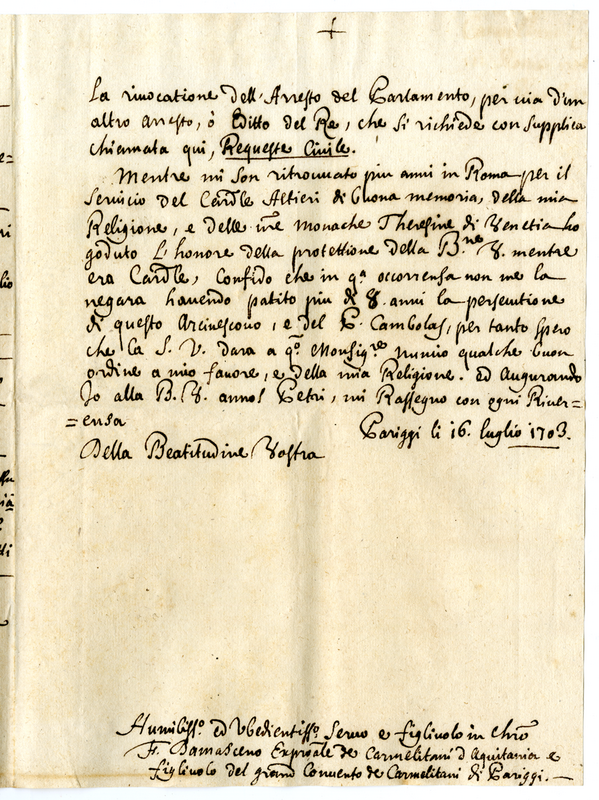 +
La riuocatione dell'Arresto del Parlamento, per uia d'un
altro arresto, ò Editto del Re, che si richiede con supplica
chiamata qui, Requeste Ciuile.
Mentre mi son ritrouato piu anni in Roma per il
seruicio del Cardle Altieri di buona memoria, della mia
Religione, e delle ure monache Theresine di Venetia ho
goduto L'honore della protettione della B.ne V. mentre
era Cardle, confido che in qa occorrensa non me la
negara hauendo patito piu di 8. anni la persecutione
di questo Arciuescouo, e del P. Cambolas, per tanto spero
che la S. V. dara a qo Monsigre nunio qualche buon
ordine a mio fauore, e della mia Religione. ed Augurando
Io alla B. V. annos Petri, mi Rassegno con ogni Riuer=
=ensa
Pariggi li 16. luglio 1703.
Della Beatitudine Vostra
Humilisso. ed Vbedientisso. Seruo e figliuolo in Chro
F. Damasceno Exproale de Carmelitani d'Aquitania e
figliuolo del grand Conuento de Carmelitani di Pariggi.